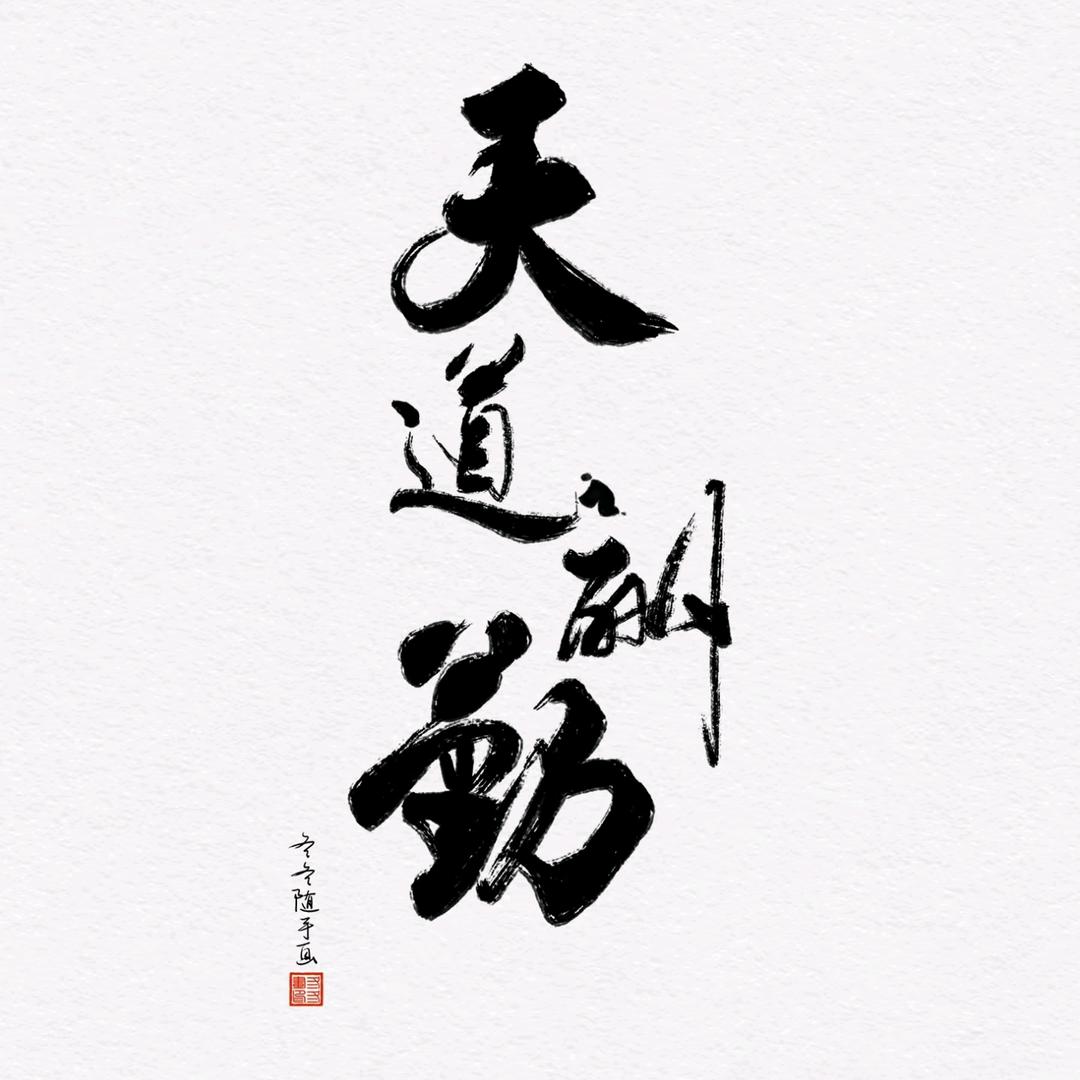 天道酬勤
冬冬随手画